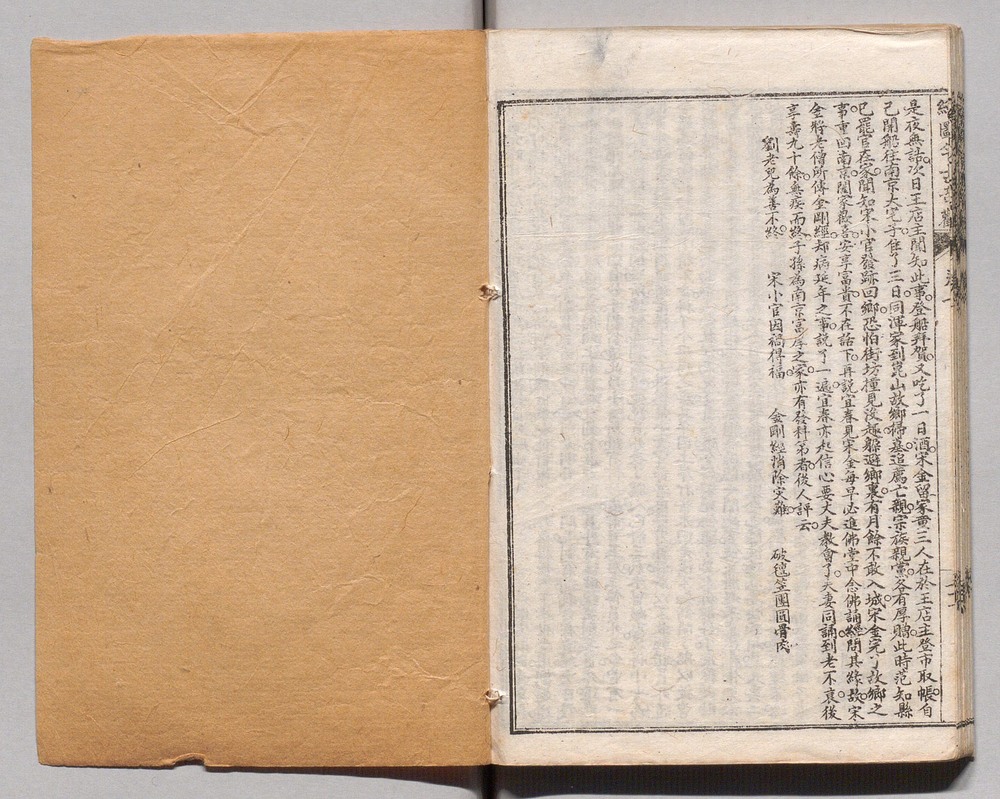 繪圖今古奇觀
是夜無話次日王店主聞知此事登船拜賀又吃了一日酒宋金留家童三人在於王店主登市取帳自
己開船往南京大宅子住了三日同渾家到崑山故鄉掃墓追薦亡親宗族親黨各有厚贈此時范知縣
已罷官在家聞知宋小官發跡回鄉恐怕街坊撞見沒趣躲避鄉裏有月餘不敢入城宋金完了故鄉之
事重回南京闔家歡喜安享富貴不在話下再說宜春見宋金每早必進佛堂中念佛誦經問其緣故宋
金將老僧所傳金剛經却病延年之事說了一遍宜春亦起信心要丈夫教會了夫妻同誦到老不衰後
享壽九十餘無疾而終子孫為南京富厚之家亦有發科第者後人評云
劉老兒為善不終　宋小官因禍得福　金剛經消除災難　破氊笠團圓骨肉